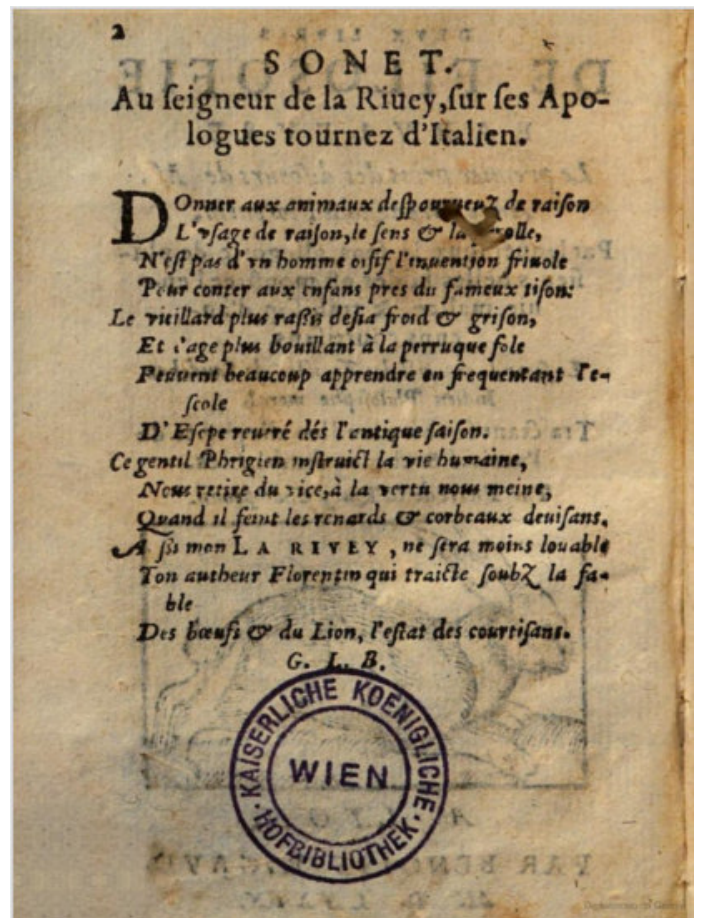 2
SONET.
Au ſeigneur de la Riuey, ſur ſes Apo-
logues tournez d'Italien.
DOnner aux animaux deſpourueuz de raiſon
L'vſage de raiſon, le ſens & la parolle,
N'eſt pas d'vn homme oiſif l'inuention friuole
Pour conter aux enfans pres du fameux tiſon:
Le vieillard plus raſsis deſia froid & griſon,
Et l'age plus bouillant à la perruque fole
Peuuent beaucoup apprendre en frequentant l'e-
ſcole
D'Eſope reueré dés l'antique ſaiſon.
Ce gentil Phrigien inſtruict la vie humaine,
Nous retire du vice, à la vertu nous meine,
Quand il feint les renards & corbeaux deuiſans.
Aſsi mon LA RIVEY, ne ſera moins louable
Ton autheur Florentin qui traicte ſoubz la fa-
ble
Des bœufs & du Lion, l'eſtat des courtiſans.
G. L. B.
KAISERLICHE KOENIGLICHE
WIEN
· HOFBIBLIOTHEK ·